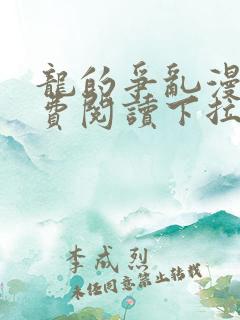 龍的爭亂漫
費閱讀下拉
李成烈
未經同意禁止轉載